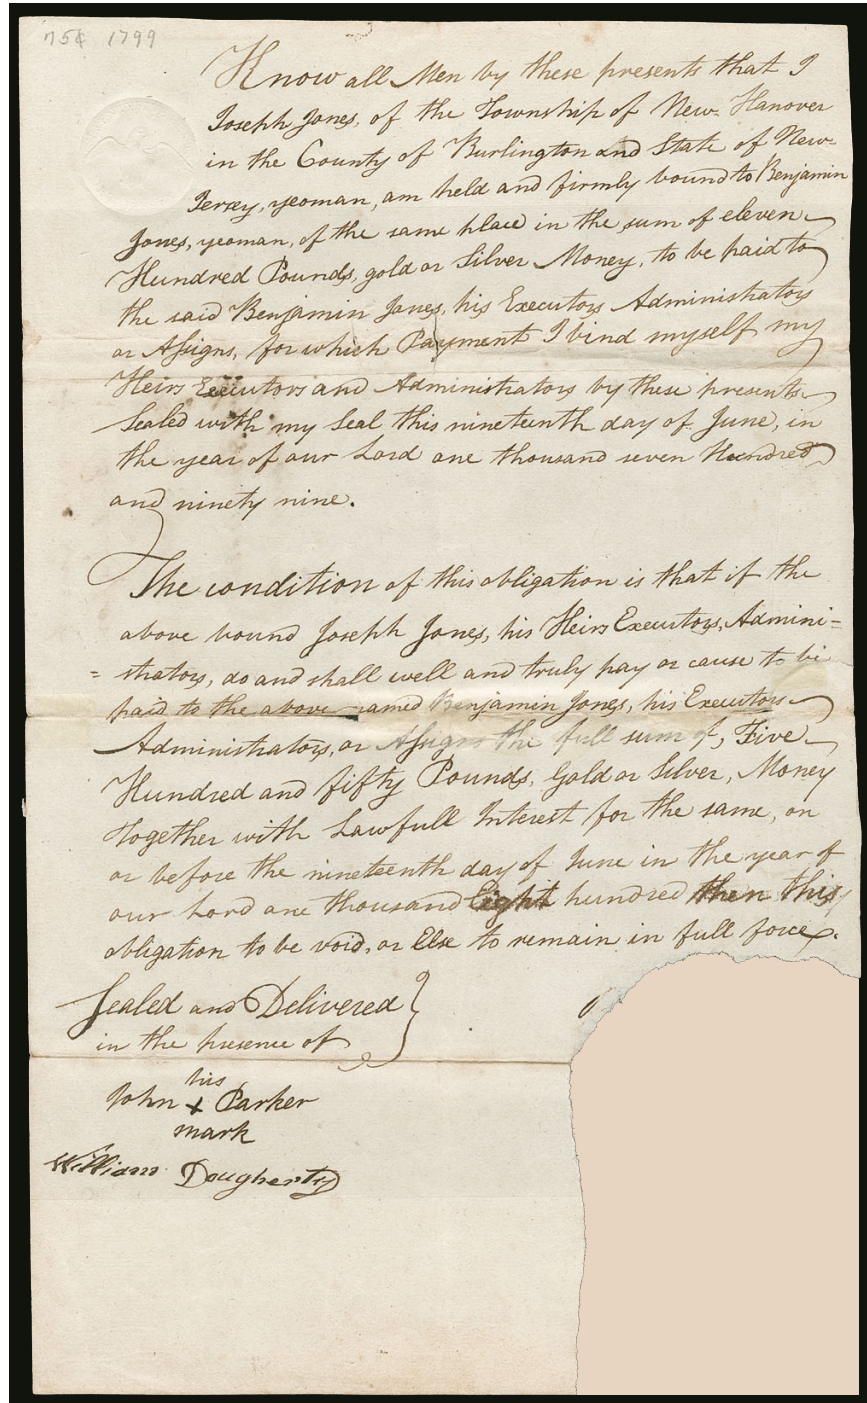 75¢ 1799
Know all Men by these presents that I
Joseph Jones, of the Township of New Hanover
in the County of Burlington and State of New-
Jersey, yeoman, am held and firmly bound to Benjamin
Jones, yeoman, of the same place in the sum of eleven
Hundred Pounds, gold or Silver Money, to be paid to
the said Benjamin Jones, his Executors Administrators
or Assigns, for which Payment I bind myself my
Heirs Executors and Administrators by these presents
Sealed with my Seal this nineteenth day of June, in
the year of our Lord one thousand seven Hundred
and ninety nine.
The condition of this obligation is that if the
above bound Joseph Jones, his Heirs Executors, Admini=
=strators, do and shall well and truly pay or cause to be
paid to the above named Benjamin Jones, his Executors
Administrators, or Assigns the full sum of, Five
Hundred and fifty Pounds, Gold or Silver, Money
together with Lawfull Interest for the same, on
or before the nineteenth day of June in the year of
our Lord one thousand Eight hundred then this
obligation to be void, or Else to remain in full force.
Sealed and Delivered }
in the presence of
his
John x Parker
mark
William Dougherty